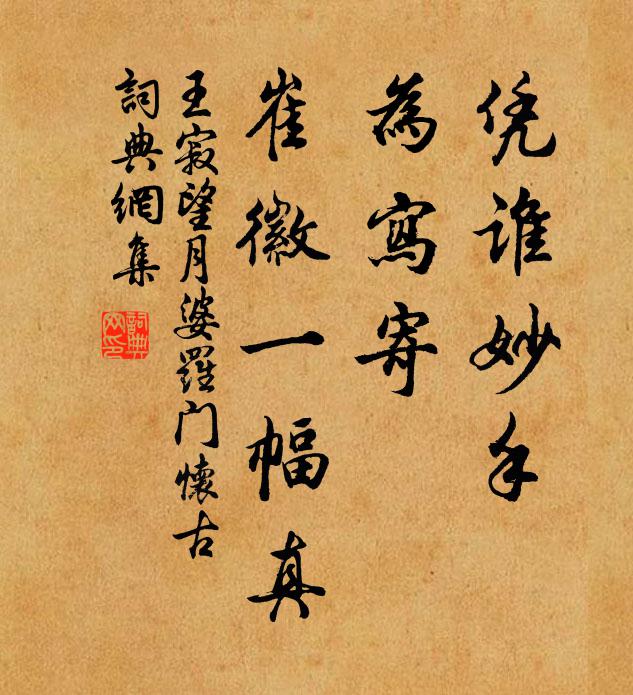 凭谁妙手
為寫寄
崔徽一幅真
王寂望月婆羅门懷古
詞典網集